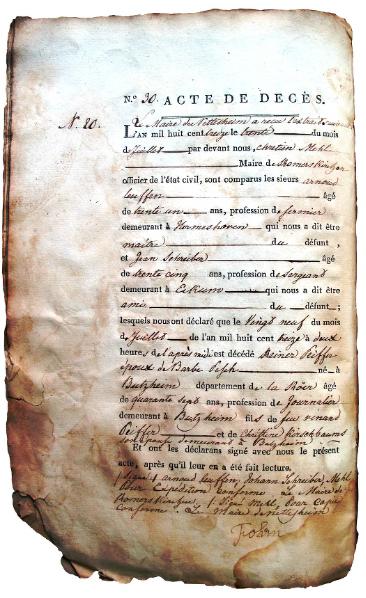 N.° 30. ACTE DE DECÈS.
N. 20.
Le Maire de Nettesheim a reçu l'extrait
L'AN mil huit cent treize le trente du mois
de Juillet par devant nous, chretien Mehl
Maire de
officier de l'état civil, sont comparus les sieurs arnold
leuffen âgé
de trente un ans, profession de fermier
demeurant à qui nous a dit être
maitre du défunt,
et Jean Schreiber âgé
de trente cinq ans, profession de Sergeant
demeurant à Eckum qui nous a dit être
amie du défunt;
lesquels nous ont déclaré que le Vingt neuf du mois
de Juillet de l'an mil huit cent treize à deux
heures de l'après midi est décédé Reiner Peiffer
epoux de Barbe né à
Butzheim département de la Röer âgé
de quarante sept ans, profession de Journalier
demeurant à Butzheim fils de feu
Peiffer et de Christine
son epouse demeurant à Butzheim
Et ont les déclarans signé avec nous le présent
acte, après qu'il leur en a été fait lecture.
Signé arnold leuffen, Johann Schreiber, Mehl
Pour Expédition Conforme Le Maire de
Signé Mehl, Pour Copie
Conforme. Le Maire de Nettesheim